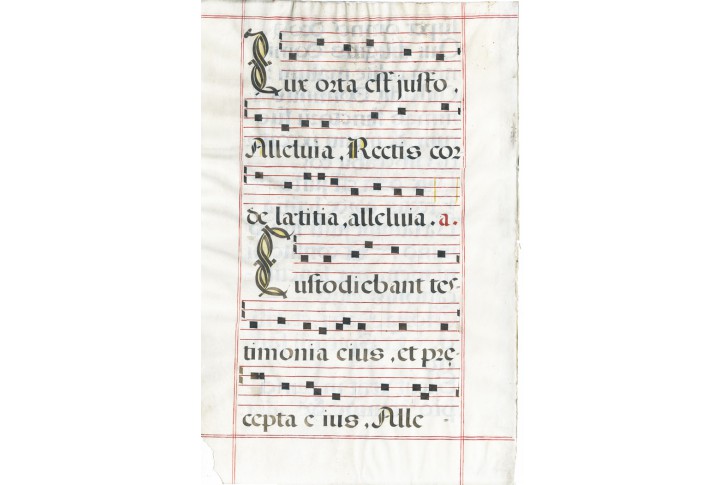 Lux orta est justo.
Alleluia, Rectis cor
de lætitia, alleluia. a.
Custodiebant tes-
timonia eius, et pre-
cepta e ius, Alle